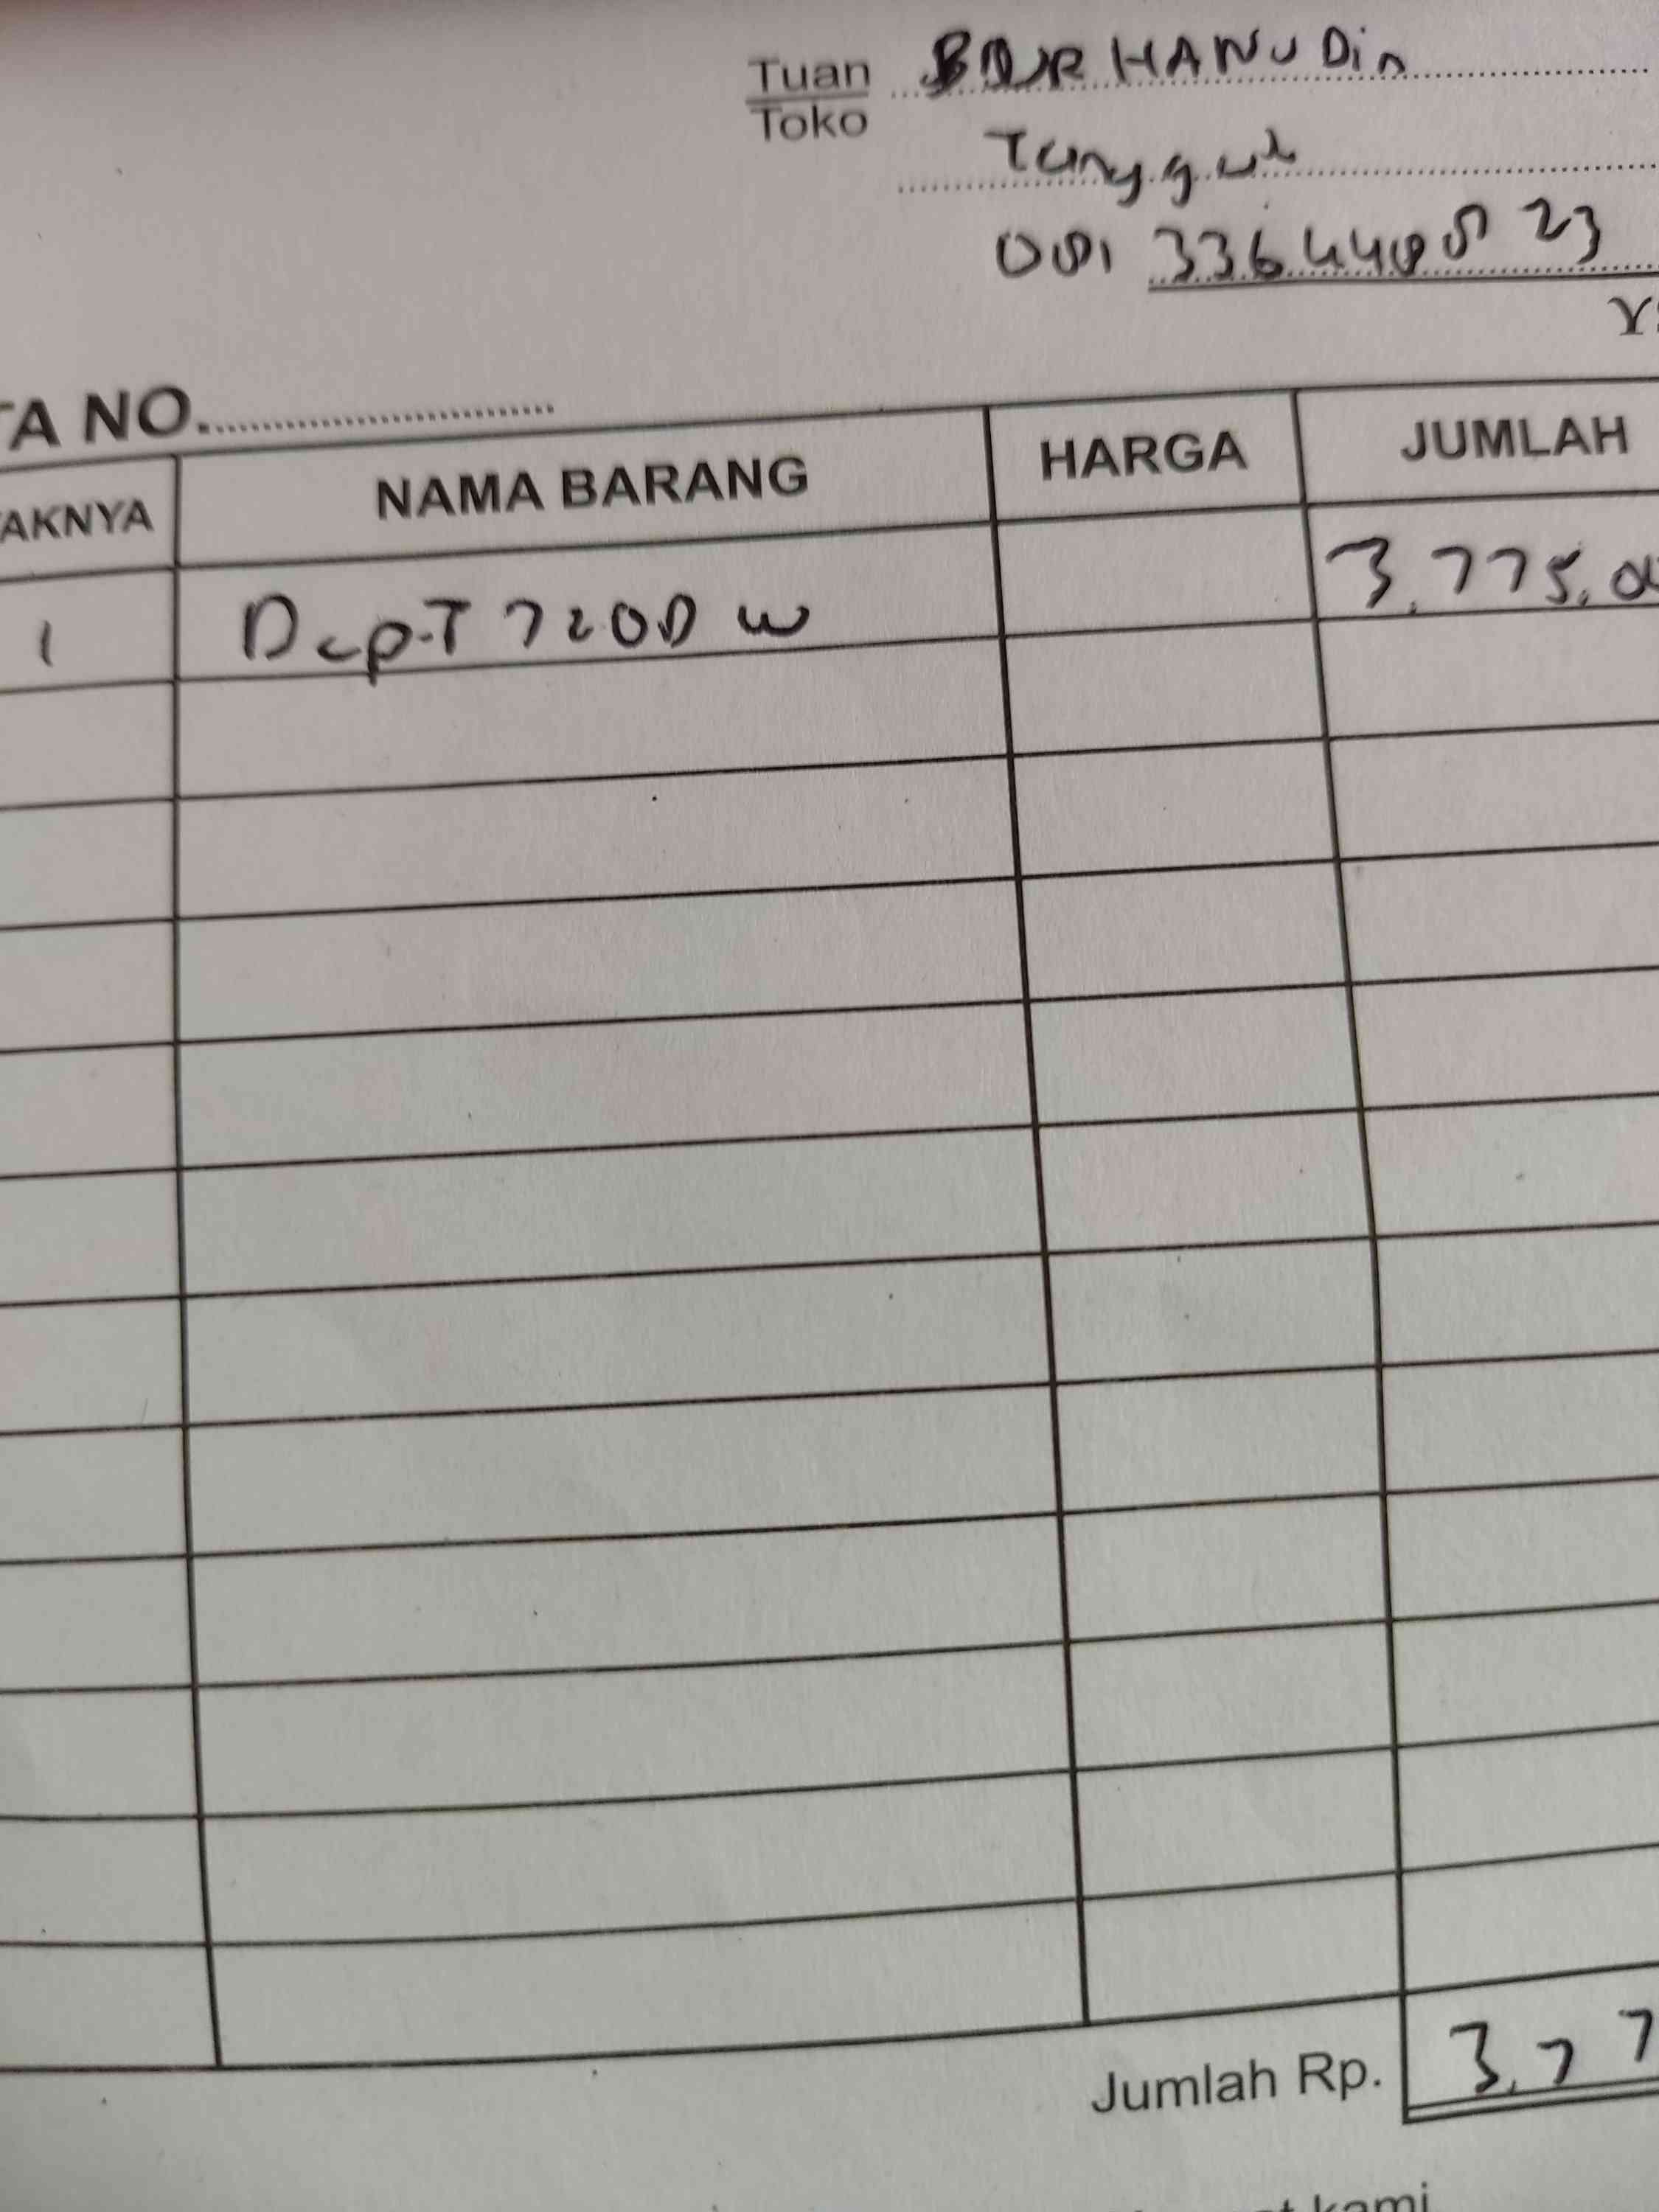 Tuan BURHANUDin
Toko
Tanggul
081 336444858 23
TA NO.
AKNYA NAMA BARANG HARGA JUMLAH
1 Dcp-T 720D w 3.775.00
Jumlah Rp. 3.77
kami